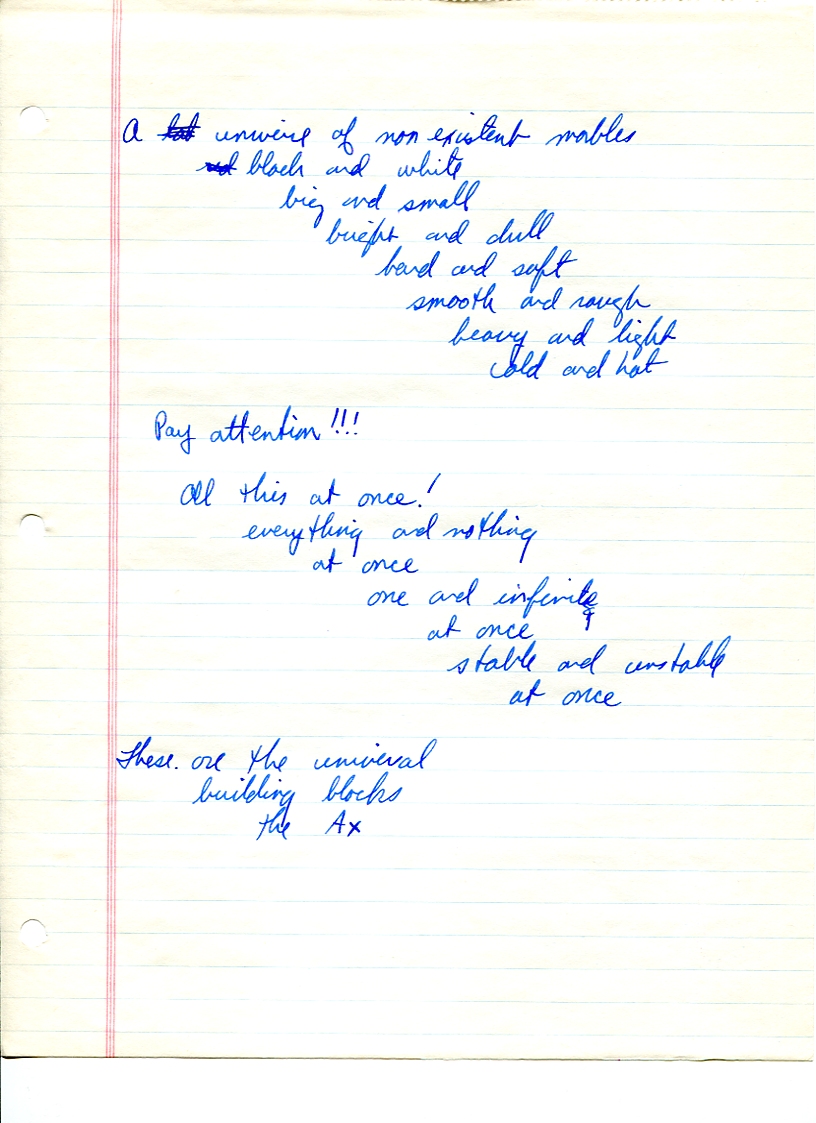 A universe of non existent marbles
black and white
big and small
bright and dull
hard and soft
smooth and rough
heavy and light
cold and hot
Pay attention!!!
All this at once!
everything and nothing
at once
one and infinite
at once
stable and unstable
at once
These are the universal
building blocks
the Ax